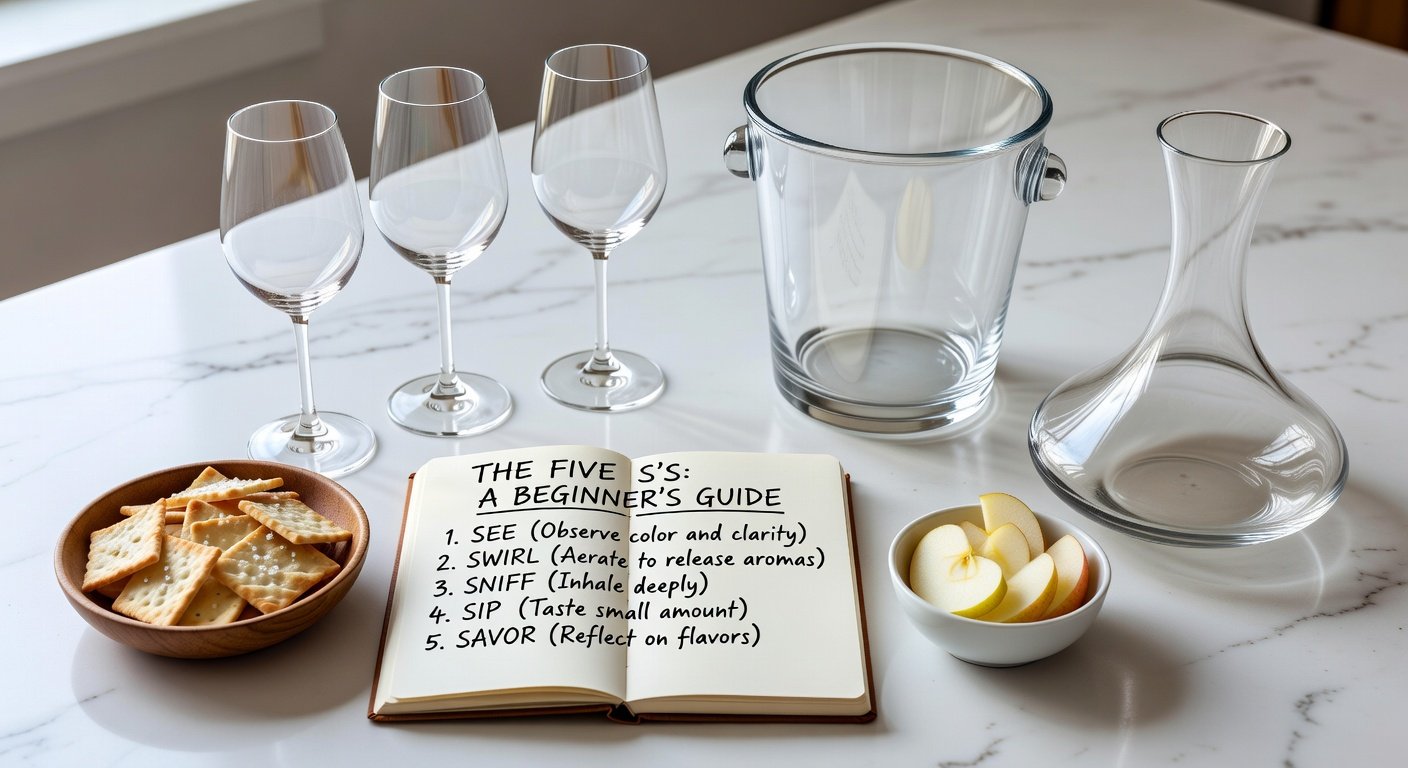 THE FIVE S'S:
A BEGINNER'S GUIDE
1. SEE (Observe color and clarity)
2. SWIRL (Aerate to release aromas)
3. SNIFF (Inhale deeply)
4. SIP (Taste small amount)
5. SAVOR (Reflect on flavors)